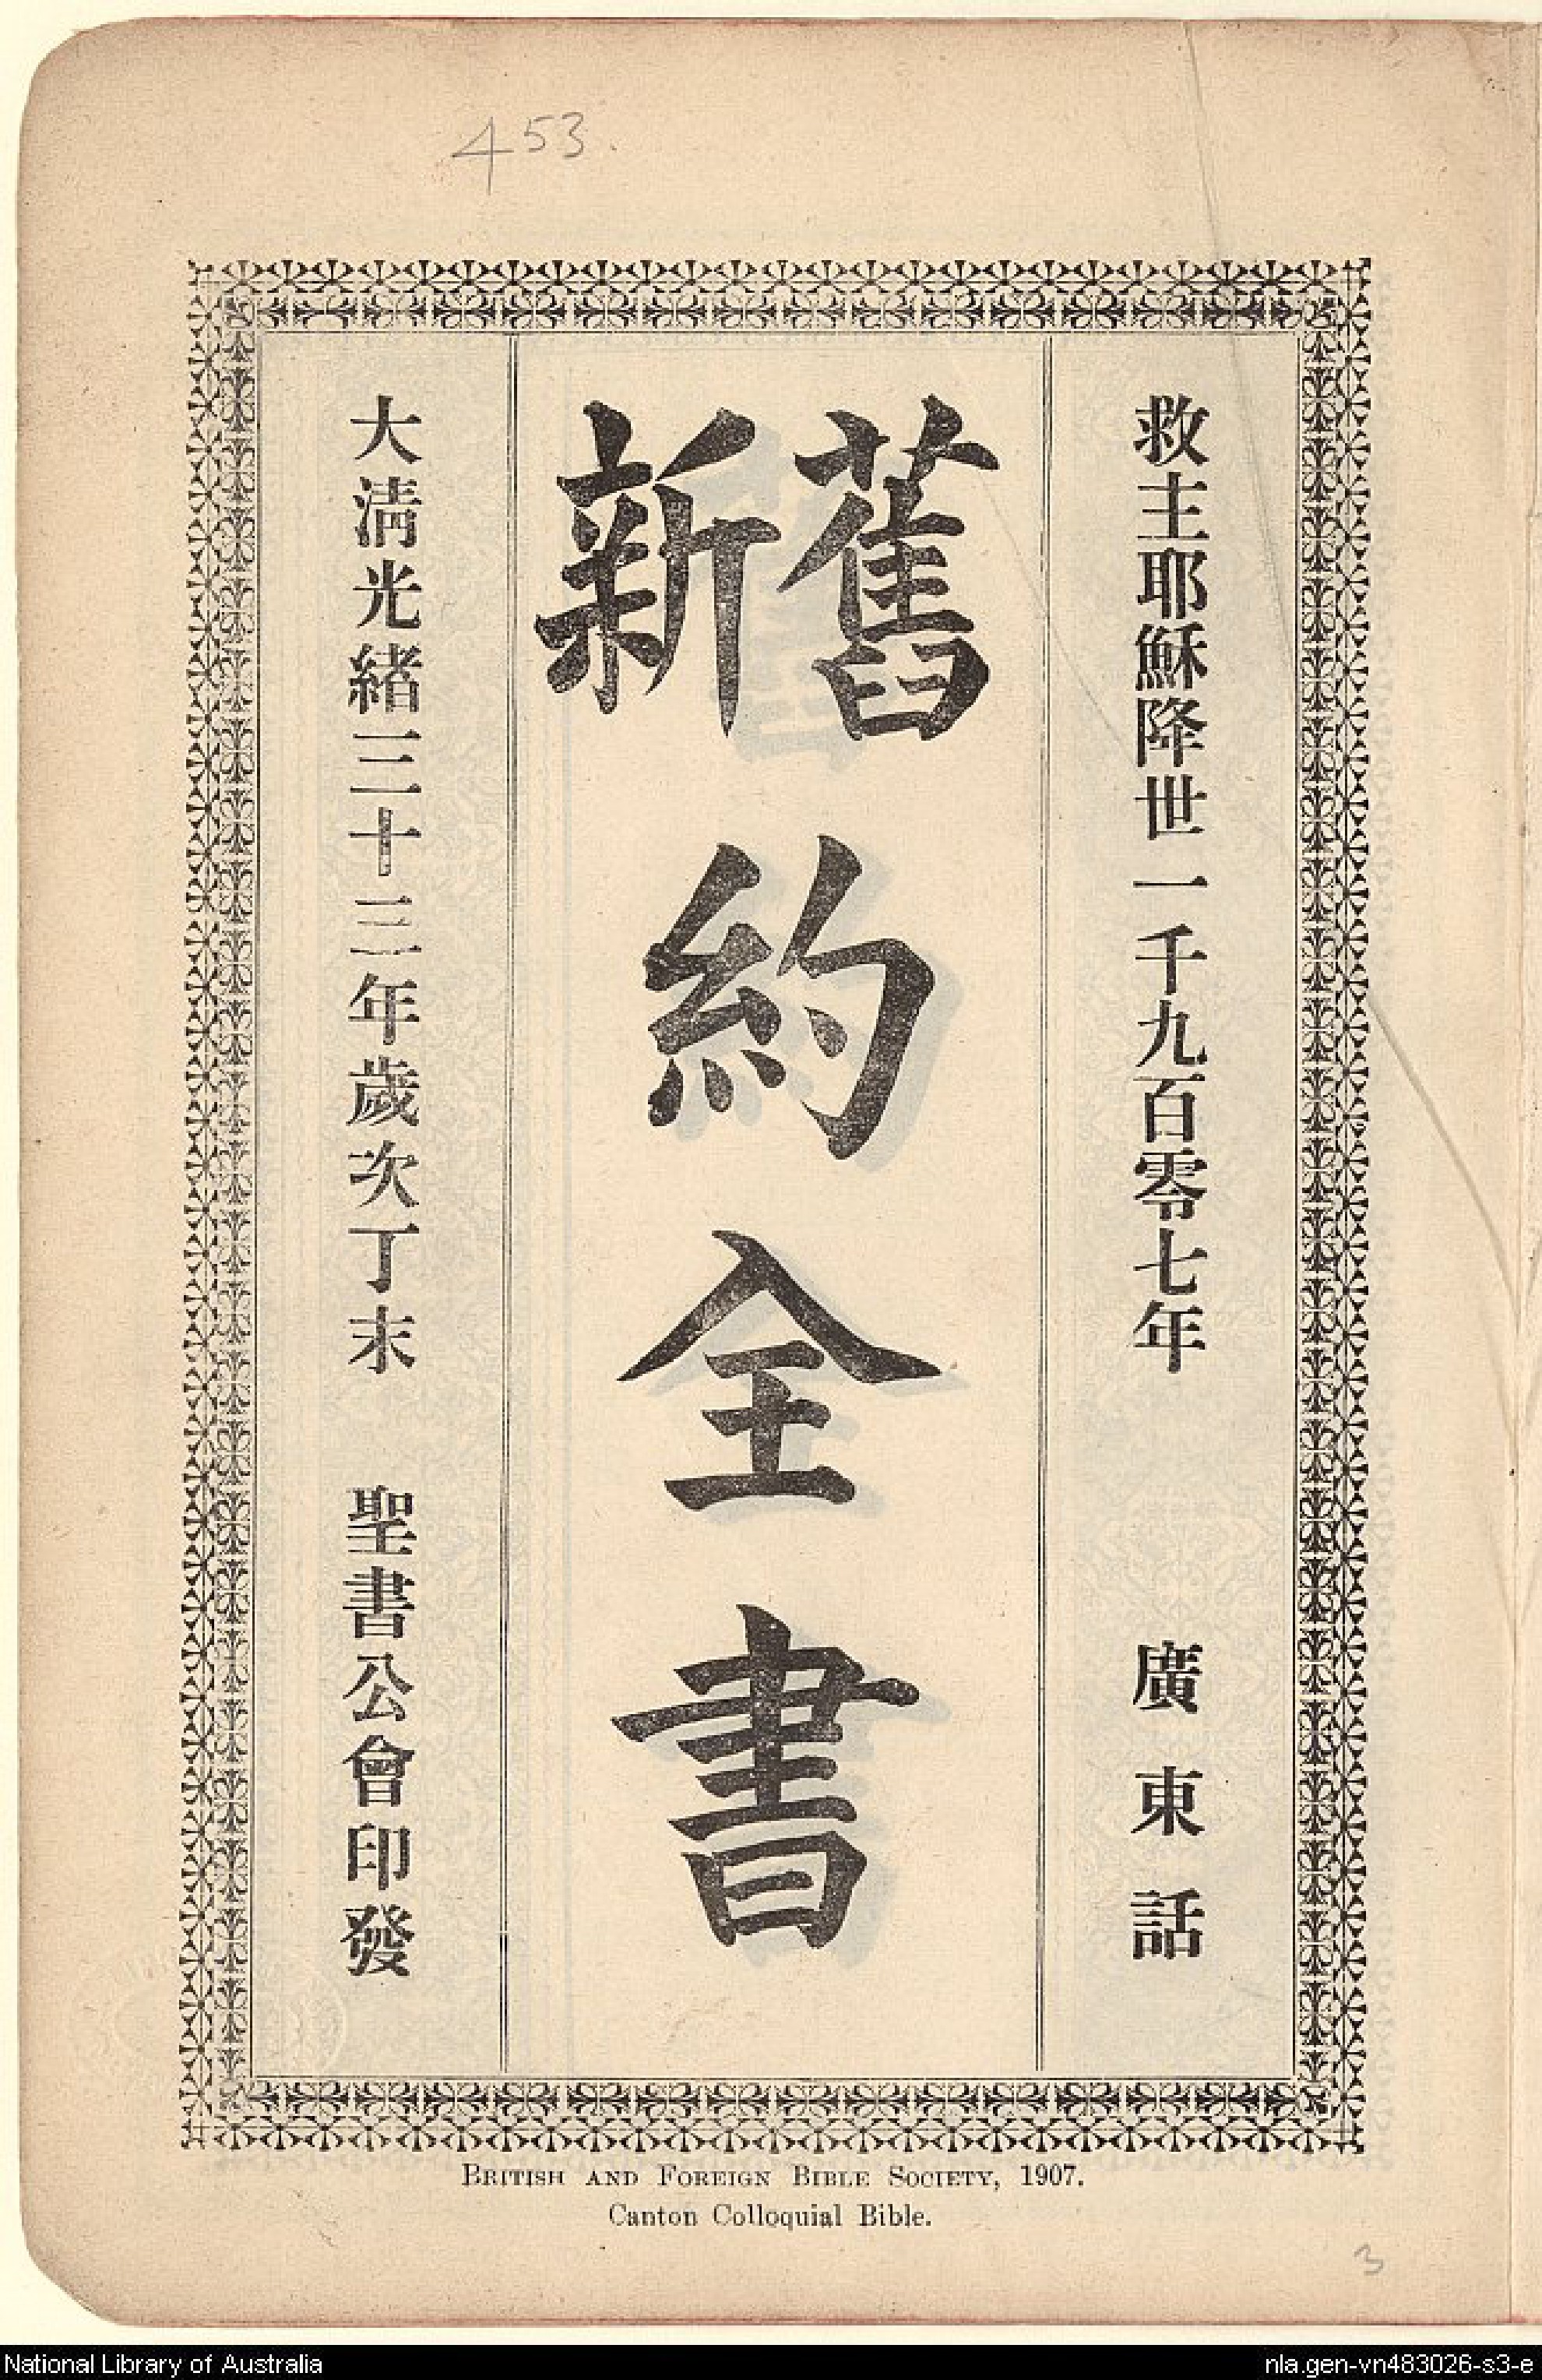 453.
救主耶穌降世一千九百零七年 廣東話
舊新約全書
大清光緒三十三年歲次丁末 聖書公會印發
British and Foreign Bible Society, 1907.
Canton Colloquial Bible.
3
National Library of Australia
nla.gen-vn483026-s3-e